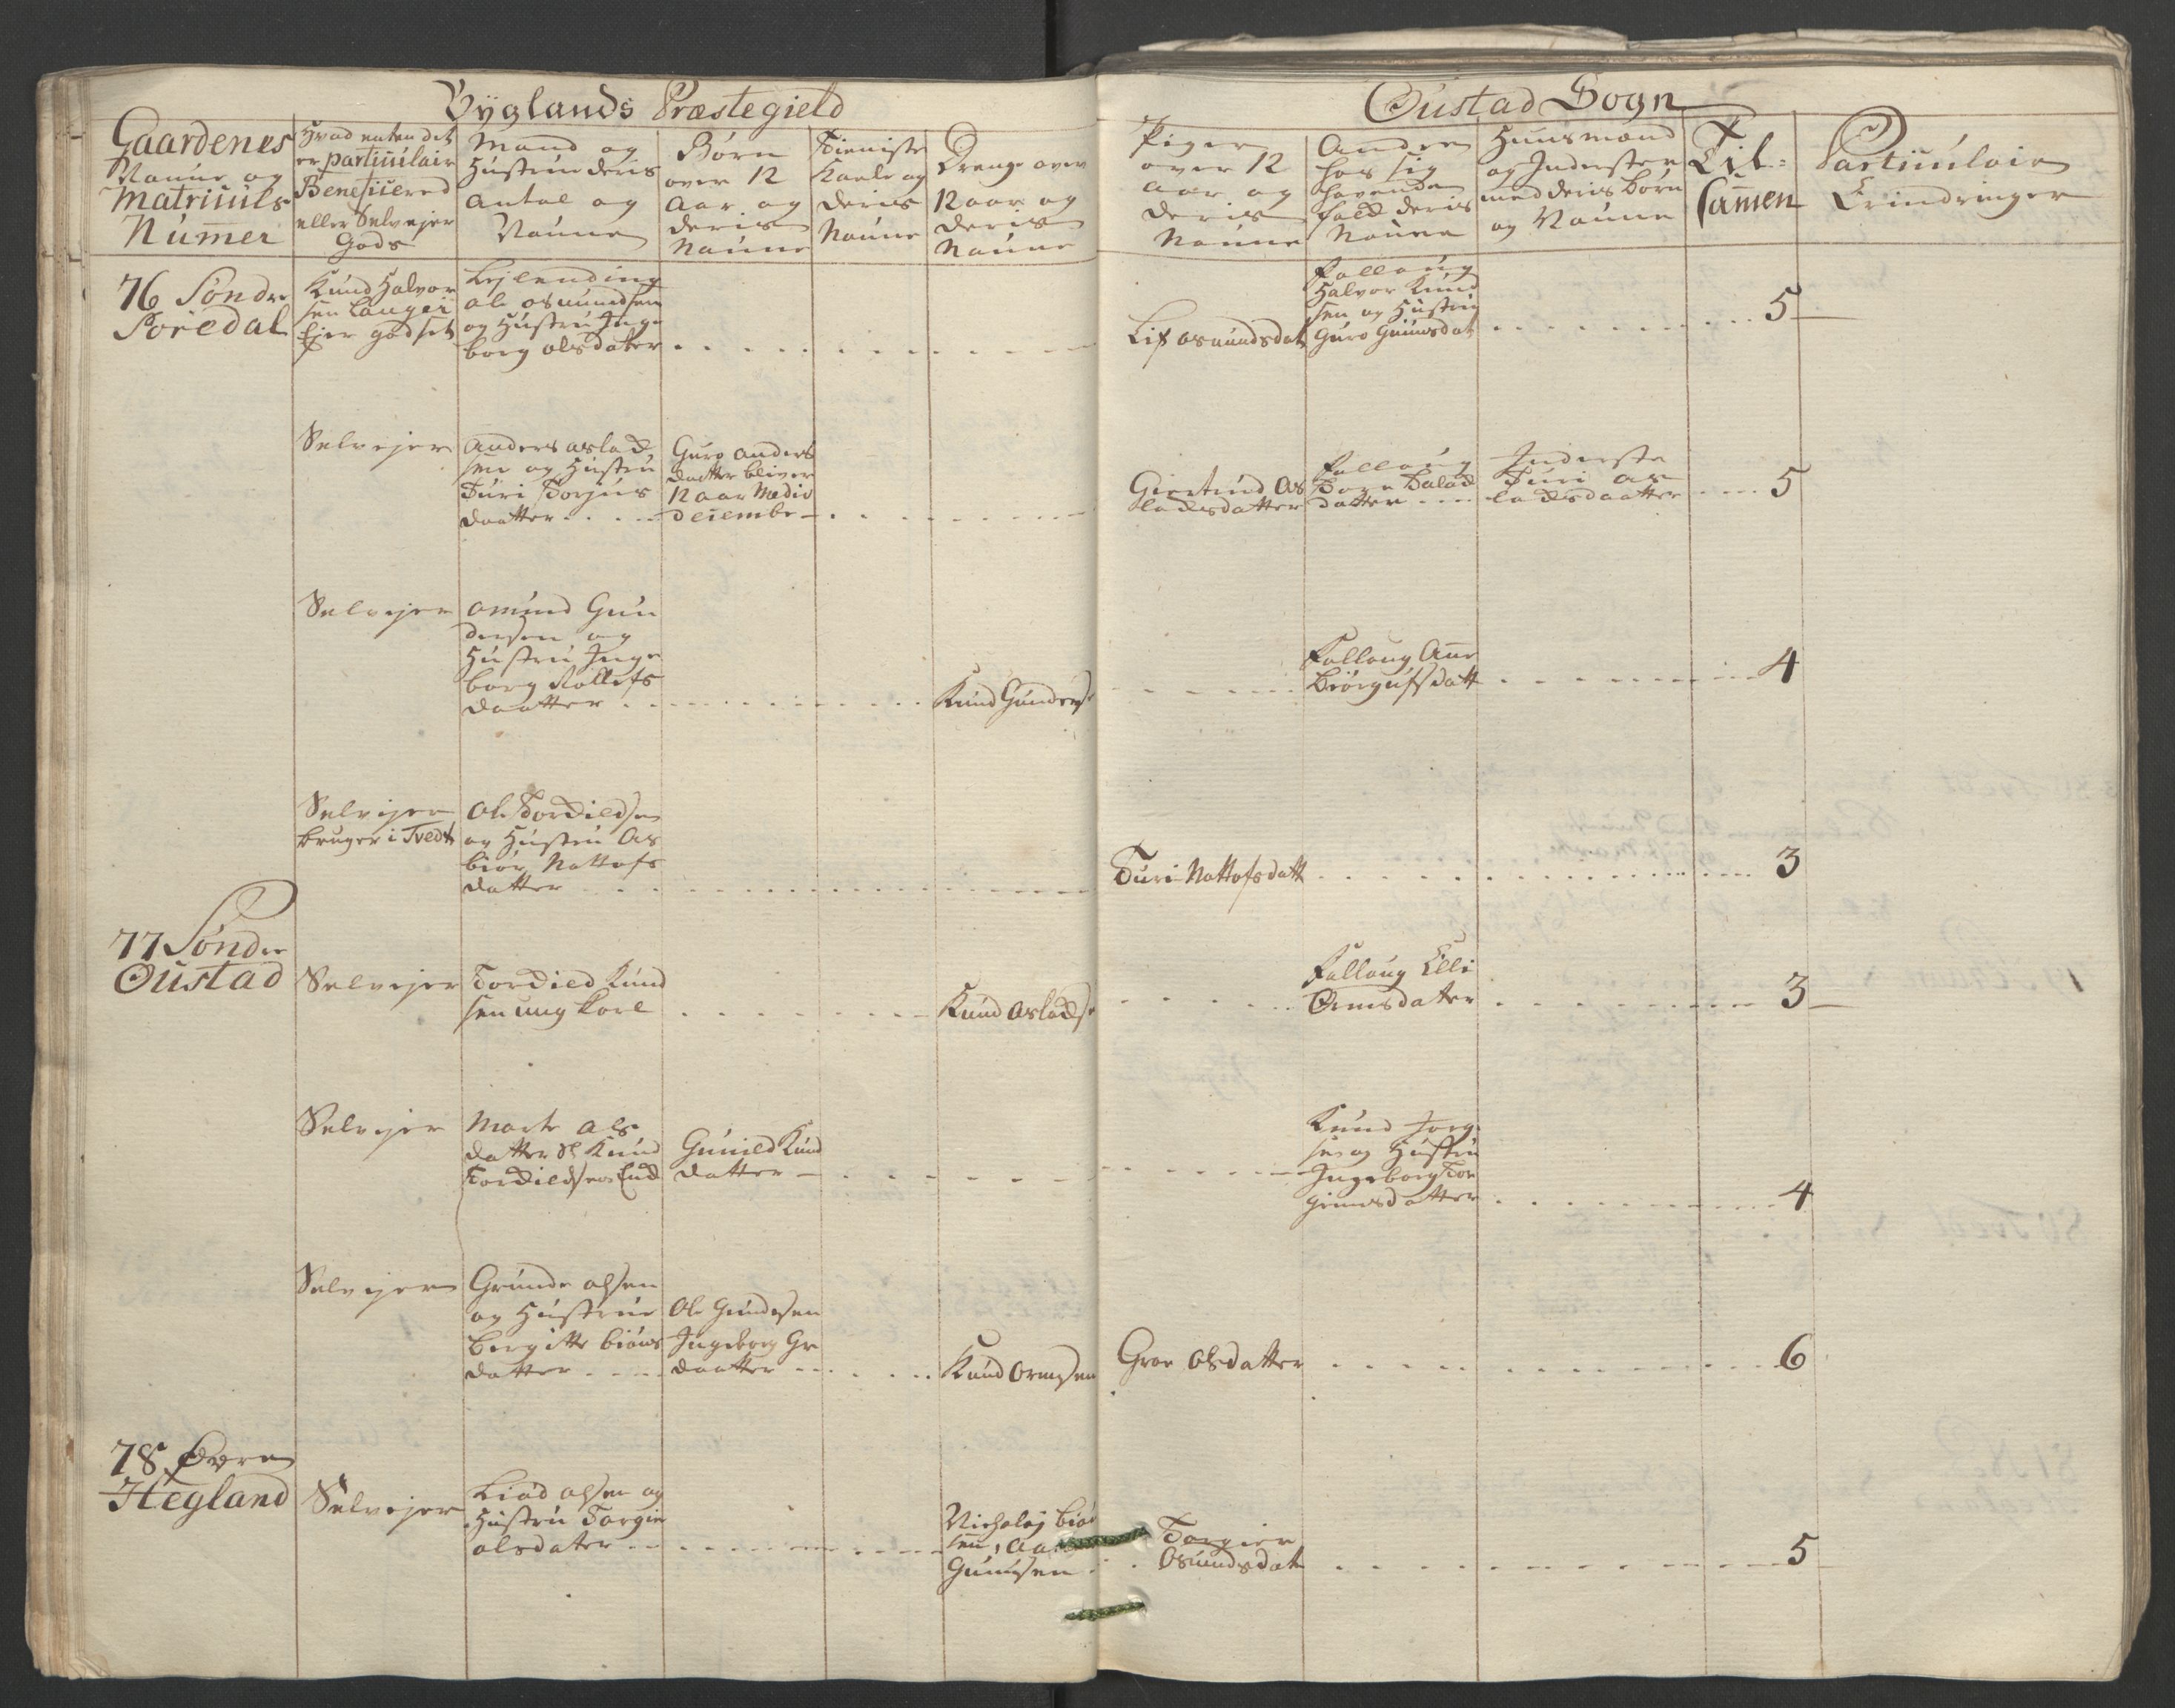 Byglands Præstegield
Oustad Sogn
Gaardenes
Naune og
Matriculs
Numer
Hvad enten det
er particulair
Beneficered
eller Selvejer
Gods
Mand og
Hustrue deris
Antal og
Naune
Børn
over 12
Aar og
deris
Naune
Tieniste
Karle og
deris
Naune
Drenge over
12 aar og
deris
Naune
Piger
over 12
Aar og
deris
Naune
Andre
hos sig
havende
Fold deris
Naune
Huusmænd
og Inderster
med deris Børn
og Naune
Til=
samen
Particulair
Erindringer
76 Sondre
Knud Halvor
sen Langei
Ejer godset
Lejlending
ole osmundsen
og Hustru Inge
borg olsdater
Lif osmundsdat
Follaug
Halvor Knud
sen og Hustru
Guro Gunnsdat
5
Selvejer
Anders aslad
sen og Hustru
Turi Torjus
daatter
Guro Anders
daatter bliver
12 aar Medio
decembr
Giertrud As
ladsdatter
Follaug
Tore Salad
datter
Inderste
Turi as
ladsdaatter
5
Selvejer
omund Gun
dersen og
Hustru Inge
borg Rollefs
daatter
Knud Gunders
Follaug Ane
Biørgufsdatt
4
Selvejer
bruger i Tvedt
Ole Tordieldsen
og Hustru As
biør Nottofs
datter
Turi Nottofsdatt
3
77 Søndre
Oustad
Selvejer
Tordied Knud
sen ung karl
Knud Aslads
Follaug Elli
Ormsdater
3
Selvejer
Marte Als
datter Sl Knud
Tordieldsens Enk
Gunild Knud
datter
Knud Jorg
sen og Hustru
Ingeborg Tor
grimsdatter
4
Selvejer
Grunde olsen
og Hustrue
Bergitte biørns
datter
Ole Gundersen
Ingeborg Gr
daatter
Knud Ormsen
Groe Olsdatter
6
78 Øvre
Hegland
Selvejer
Liod olsen og
Hustru Torgier
olsdater
Nicholaj biør
sen,
Gunnsen
Torgier
Osmundsdat
5